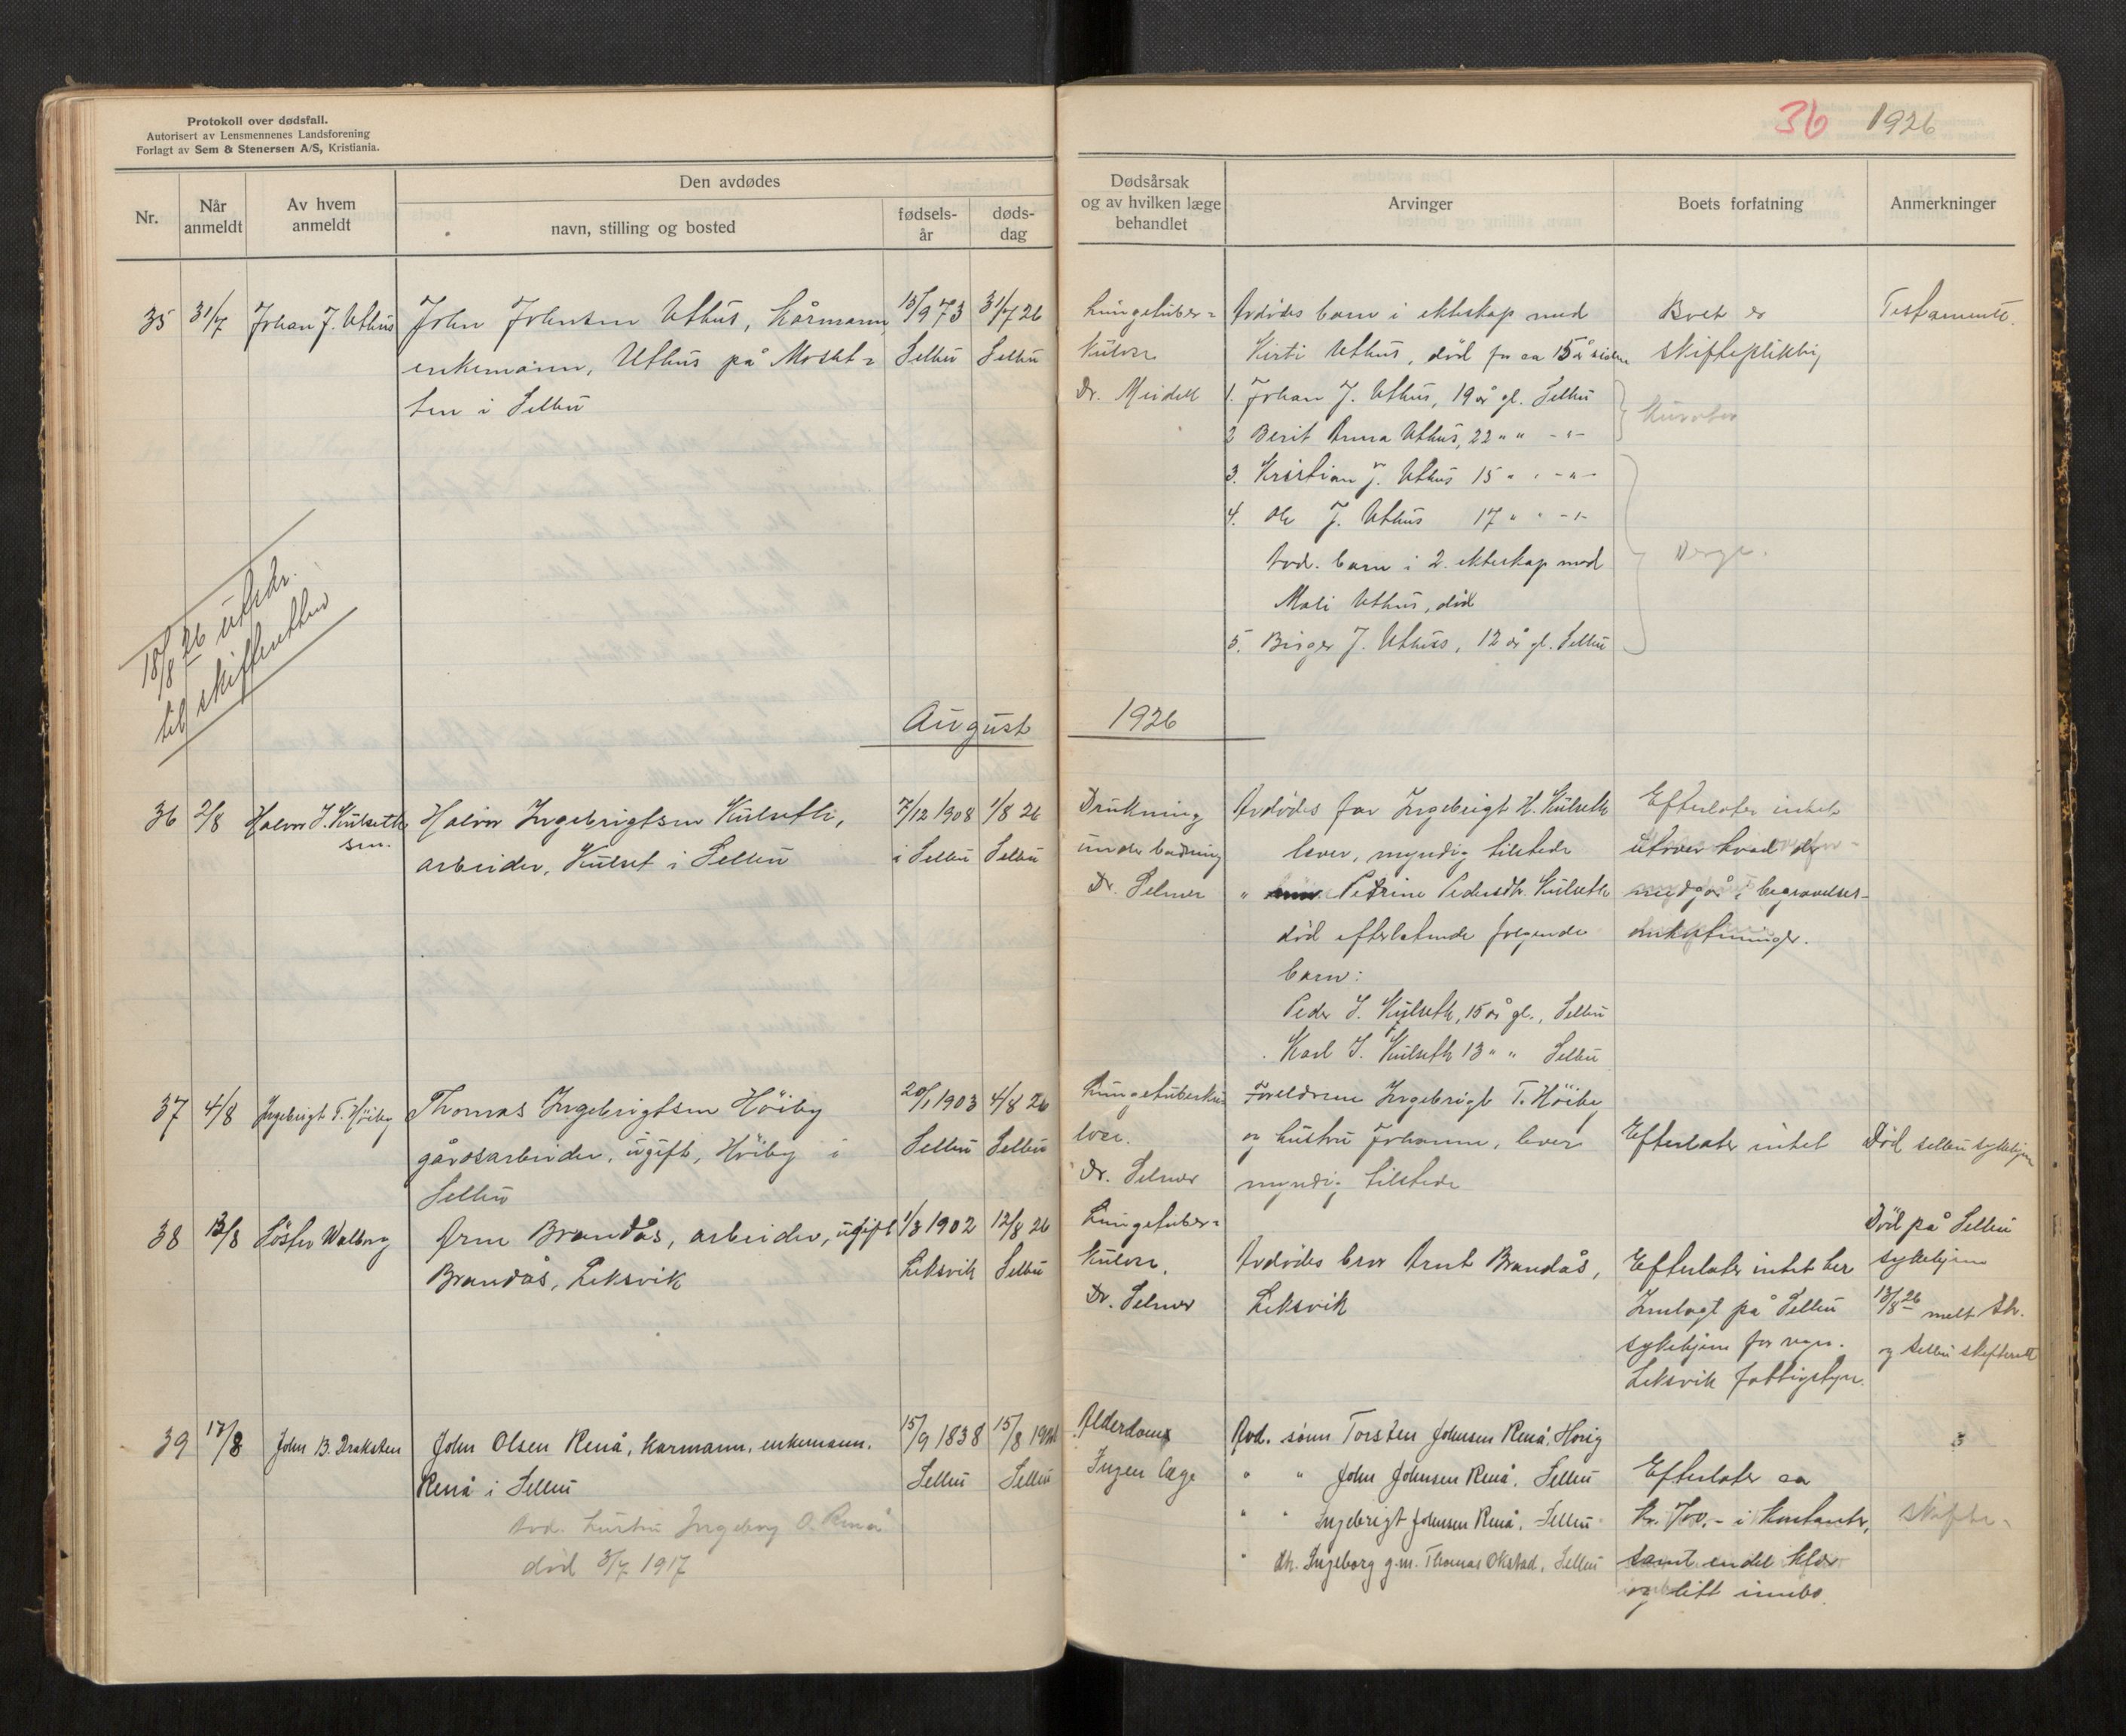 Protokoll over dødsfall.
Autorisert av Lensmennenes Landsforening
Forlagt av Sem & Stenersen A/S, Kristiania.
36 1926
Nr.
Når anmeldt
Av hvem anmeldt
Den avdødes
navn, stilling og bosted
fødsels-år
døds-dag
Dødsårsak
og av hvilken læge
behandlet
Arvinger
Boets forfatning
Anmerkninger
35 31/7 Johan J. Uthus John Johnsen Uthus, kårmann 15/9 73 31/7 26
enkemann, Uthus på Moslet= Selbu Selbu
ten i Selbu
Lungetuber=
kulose
Dr. Meidell
Avdødes barn i ekteskap med
Kirti Uthus, død for ca 15 år siden
1. Johan J. Uthus, 19 år gl. Selbu
2 Berit Anna Uthus, 22 " " - " -
3. Kristian J. Uthus 15 " " - " -
4. Ole J. Uthus 17 " " - " -
Avd. barn i 2. ekteskap med
Mali Uthus, død
5. Birger J. Uthus, 12 år gl. Selbu
Boet er
skiftepliktig
Kurator
Verge.
Testamente.
18/8 26 utskr.
til skifteretten
August 1926
36 2/8 Halvor I. Kulseth Halvor Ingebrigtsen Kulseth, 7/12 1908 1/8 26
sen.
arbeider, Kulset i Selbu i Selbu Selbu
Drukning
under badning
Dr. Selmer
Avdødes far Ingebrigt H. Kulseth
lever, myndig tilstede
" Petrine Pedersdtr. Kulseth
død efterlatende følgende
barn:
Peder I. Kulseth, 15 år gl., Selbu
Karl I. Kulseth 13 " " Selbu
Efterlater intet
utover hvad der
medgår i begravelses-
omkostninger.
37 4/8 Ingebrigt T. Höiby Thomas Ingebrigtsen Höiby 20/1 1903 4/8 26
gårdsarbeider, ugift, Höiby i Selbu Selbu
Selbu
Lungetuberku
lose.
Dr. Selmer
Foreldrene Ingebrigt T. Höiby
og hustru Johanne, lever
myndig tilstede
Efterlater intet
Död Selbu sykehjem
38 13/8 Söster Walborg Arne Brandås, arbeider, ugift 1/3 1902 12/8 26
Brandås, Leksvik Leksvik Selbu
Lungetuber=
kulose.
Dr. Selmer
Avdødes bror Arnt Brandås,
Leksvik
Efterlater intet her
Innlagt på Selbu
sykehjem for regn.
Leksvik fattigstyre.
Död på Selbu
sykehjem
13/8 26 melt
og Selbu skifterett
39 17/8 John B. Draksten John Olsen Renå, karmann, enkemann. 15/9 1838 15/8 1926
Renå i Selbu Selbu Selbu
avd. hustru Ingeborg O. Renå
död 3/7 1917
Alderdoms
Ingen læge
Avd. sönn Torsten Johnsen Renå, Horig
" " John Johnsen Renå, Selbu
" " Ingebrigt Johnsen Renå, Selbu
" dtr. Ingeborg g.m. Thomas Okstad, Selbu
Efterlater ca
kr. 700,- i kontanter,
samt endel klær
og litt innbo.
Skifte-